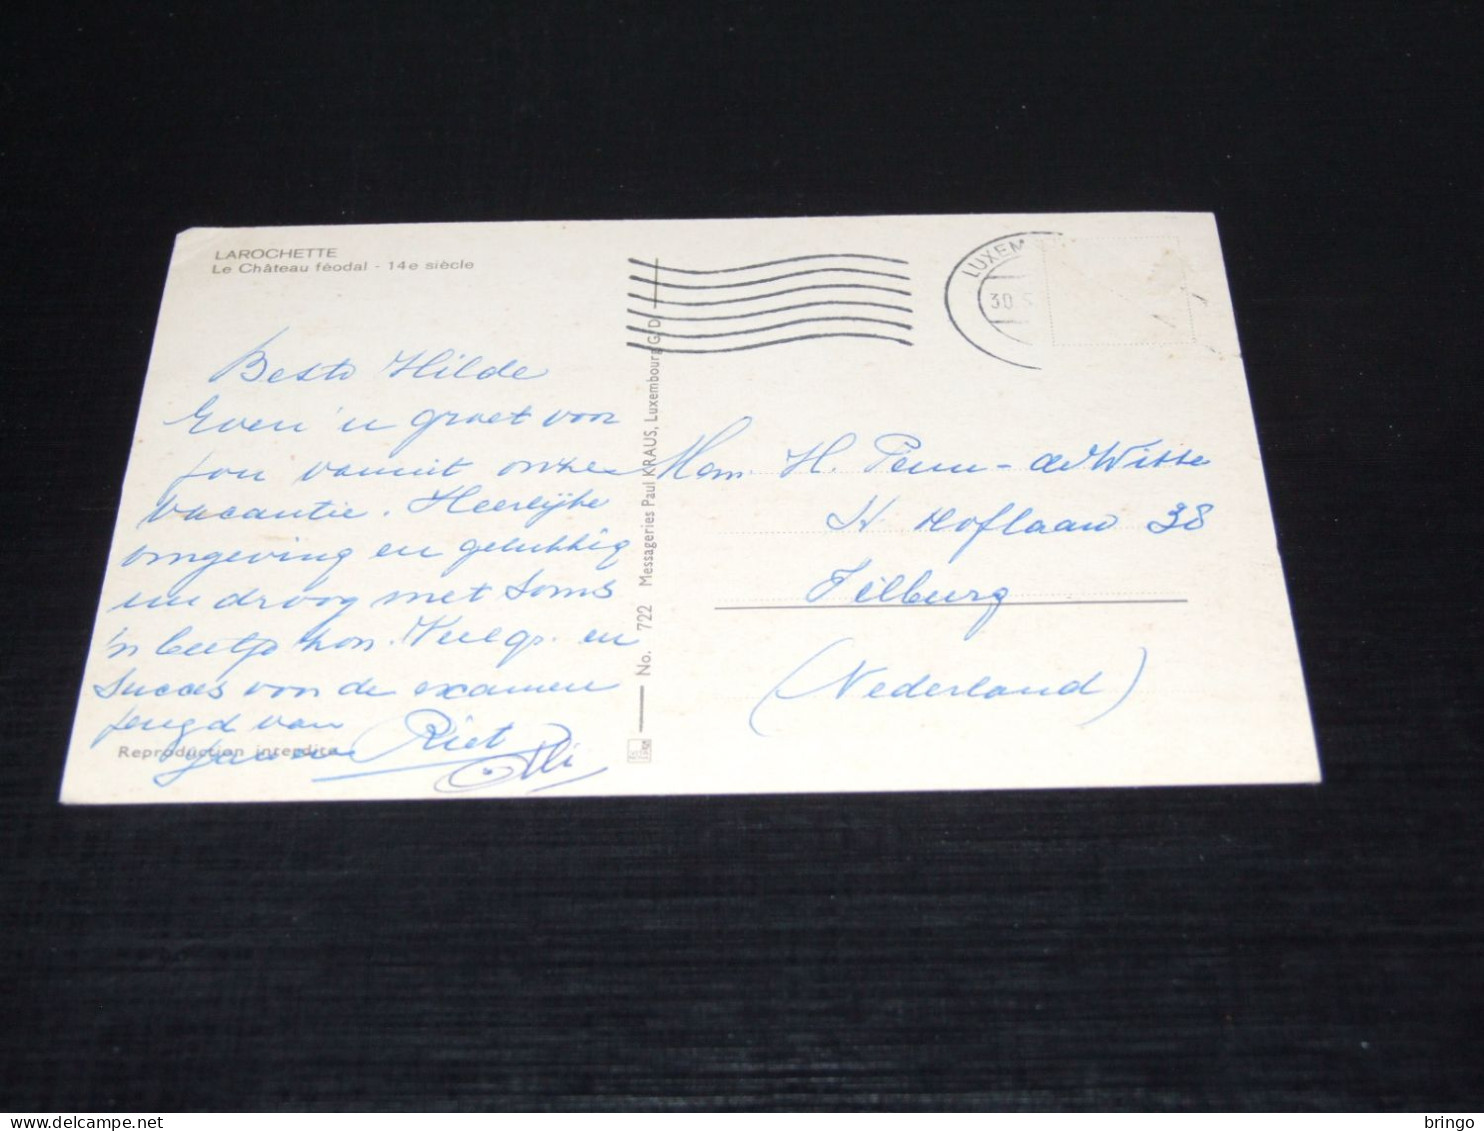 LAROCHETTE
Le Château féodal - 14e siècle
LUXEM
30
Beste Hilde
Even 'n groet voor
jou vanuit onze
vacantie. Heerlijke
omgeving en gelukkig
nu droog met soms
'n beetje zon. Veel gr. en
Succes voor de examen
jeugd van
Riet
Reproduction interdite
No. 722 Messageries Paul KRAUS, Luxembourg G.D.
Mevr. H. Penn - de Witte
Hoflaan 38
Tilburg
(Nederland)
www.delcampe.net
bringo